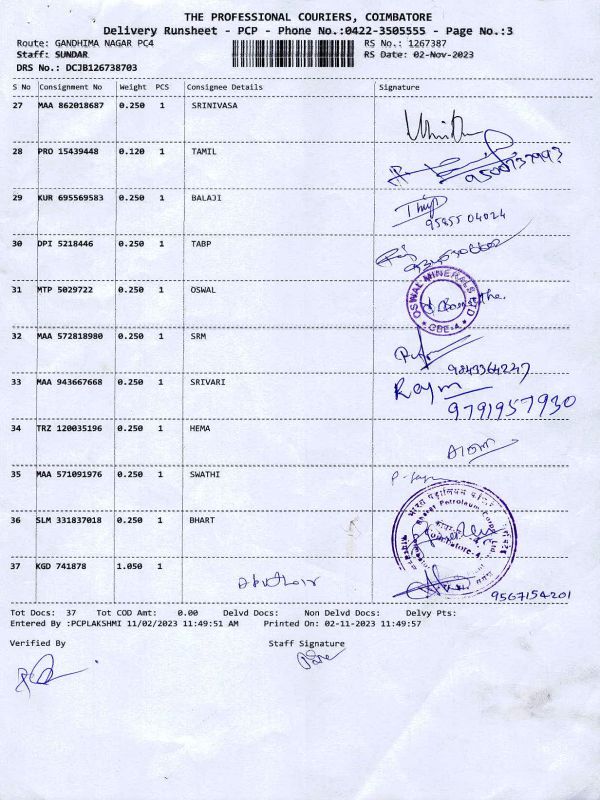 THE PROFESSIONAL COURIERS, COIMBATORE
Delivery Runsheet - PCP - Phone No.:0422-3505555 - Page No.:3
Route: GANDHIMA NAGAR PC4 RS No.: 1267387
Staff: SUNDAR RS Date: 02-Nov-2023
DRS No.: DCJB126738703
S No Consignment No Weight PCS Consignee Details Signature
27 MAA 862018687 0.250 1 SRINIVASA
28 PRO 15439448 0.120 1 TAMIL
29 KUR 695569583 0.250 1 BALAJI
9585504024
30 DPI 5218446 0.250 1 TABP
31 MTP 5029722 0.250 1 OSWAL
OSWAL MINERALS LTD
CBE-4
32 MAA 572818980 0.250 1 SRM
9843364247
33 MAA 943667668 0.250 1 SRIVARI
9791957930
34 TRZ 120035196 0.250 1 HEMA
35 MAA 571091976 0.250 1 SWATHI
36 SLM 331837018 0.250 1 BHART
Bharat Petroleum Corpn. Ltd.
37 KGD 741878 1.050 1
9567154201
Tot Docs: 37 Tot COD Amt: 0.00 Delvd Docs: Non Delvd Docs: Delvy Pts:
Entered By :PCPLAKSHMI 11/02/2023 11:49:51 AM Printed On: 02-11-2023 11:49:57
Verified By Staff Signature